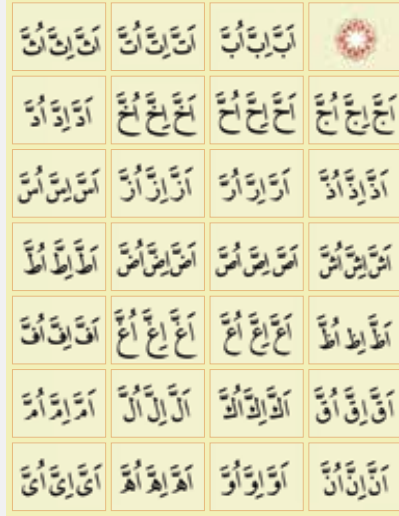 اَبَّ اِبَّ اُبَّ اَتَّ اِتَّ اُتَّ اَثَّ اِثَّ اُثَّ
اَجَّ اِجَّ اُجَّ اَحَّ اِحَّ اُحَّ اَخَّ اِخَّ اُخَّ اَدَّ اِدَّ اُدَّ
اَذَّ اِذَّ اُذَّ اَرَّ اِرَّ اُرَّ اَزَّ اِزَّ اُزَّ اَسَّ اِسَّ اُسَّ
اَشَّ اِشَّ اُشَّ اَصَّ اِصَّ اُصَّ اَضَّ اِضَّ اُضَّ اَطَّ اِطَّ اُطَّ
اَظَّ اِظَّ اُظَّ اَعَّ اِعَّ اُعَّ اَغَّ اِغَّ اُغَّ اَفَّ اِفَّ اُفَّ
اَقَّ اِقَّ اُقَّ اَكَّ اِكَّ اُكَّ اَلَّ اِلَّ اُلَّ اَمَّ اِمَّ اُمَّ
اَنَّ اِنَّ اُنَّ اَوَّ اِوَّ اُوَّ اَهَّ اِهَّ اُهَّ اَىَّ اِىَّ اُىَّ